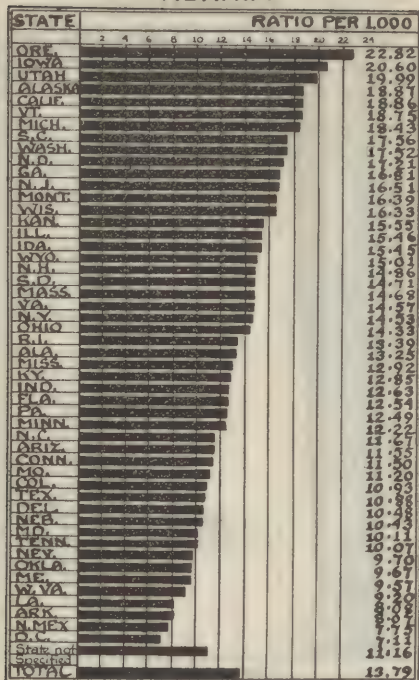 STATE RATIO PER 1,000
2 4 6 8 10 12 14 16 18 20 22 24
ORE. 22.82
IOWA 20.60
UTAH 19.90
ALASKA 18.87
CALIF. 18.86
VT. 18.75
MICH. 18.43
S.C. 17.56
WASH. 17.52
N.D. 17.21
GA. 16.81
N.J. 16.51
MONT. 16.39
WIS. 16.33
KAN. 15.55
ILL. 15.46
IDA. 15.45
WYO. 15.01
N.H. 14.86
S.D. 14.71
MASS 14.68
VA. 14.57
N.Y. 14.53
OHIO 14.33
R.I. 13.39
ALA. 13.25
MISS. 12.92
KY. 12.85
IND. 12.63
FLA. 12.54
PA. 12.49
MINN. 12.22
N.C. 11.67
ARIZ. 11.55
CONN. 11.50
MO. 11.20
COL. 10.93
TEX. 10.88
DEL. 10.48
NEB. 10.43
MD. 10.11
TENN. 10.07
NEV. 9.70
OKLA. 9.67
ME. 9.57
W.VA. 9.20
LA.
ARK.
N.MEX
D.C. 7.11
State not
Specified 11.16
TOTAL 13.79